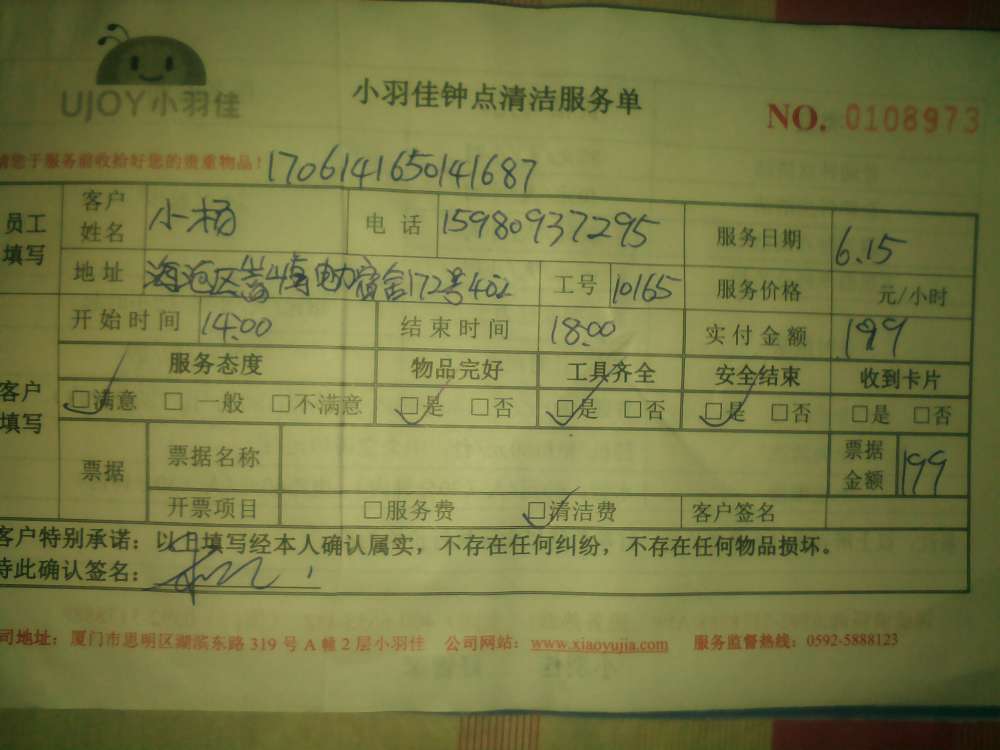 UJOY小羽佳
小羽佳钟点清洁服务单
NO. 0108973
请您于服务前收拾好您的贵重物品!
1706141650141687
员工填写
客户姓名 小杨 电话 15980937295 服务日期 6.15
地址 海沧区 电力宿舍172号402 工号 10165 服务价格 元/小时
开始时间 14:00 结束时间 18:00 实付金额 199
客户填写
服务态度 物品完好 工具齐全 安全结束 收到卡片
□满意 □一般 □不满意 □是 □否 □是 □否 □是 □否 □是 □否
票据 票据名称 票据金额 199
开票项目 □服务费 □清洁费 客户签名
客户特别承诺:以上填写经本人确认属实,不存在任何纠纷,不存在任何物品损坏。
特此确认签名:
司地址:厦门市思明区湖滨东路 319 号 A 幢 2 层小羽佳 公司网站:www.xiaoyujia.com 服务监督热线:0592-5888123